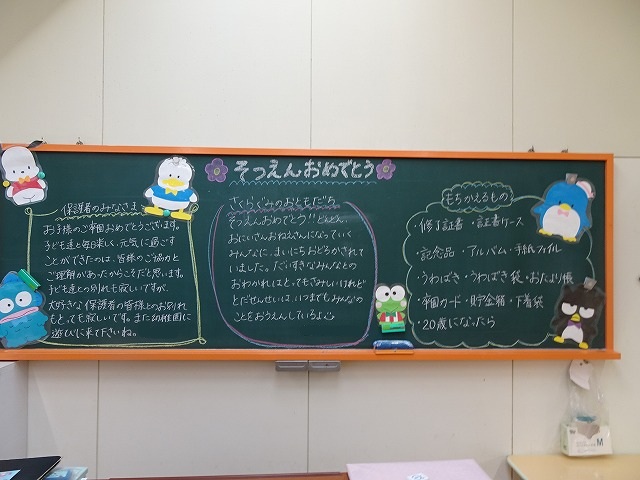 そつえんおめでとう
保護者のみなさま
お子様のご卒園おめでとうございます。
子ども達と毎日楽しく元気に過ごす
ことができたのは、皆様のご協力と
ご理解があったからこそだと思います。
子ども達との別れも寂しいですが、
大好きな保護者の皆様とのお別れ
もとっても寂しいです。また幼稚園に
遊びに来て下さいね。
さくらぐみのおともだち
そつえんおめでとう!!どんどん、
おにいさんおねえさんになっていく
みんなに、まいにちおどろかされて
いました。だいすきなみんなとの
おわかれはとってもさみしいけれど
とだせんせいは、いつまでもみんなの
ことをおうえんしているよ
もちかえるもの
・修了証書・証書ケース
・記念品・アルバム・手紙ファイル
・うわばき・うわばき袋・おたより帳
・卒園カード・貯金箱・下着袋
・20歳になったら
M